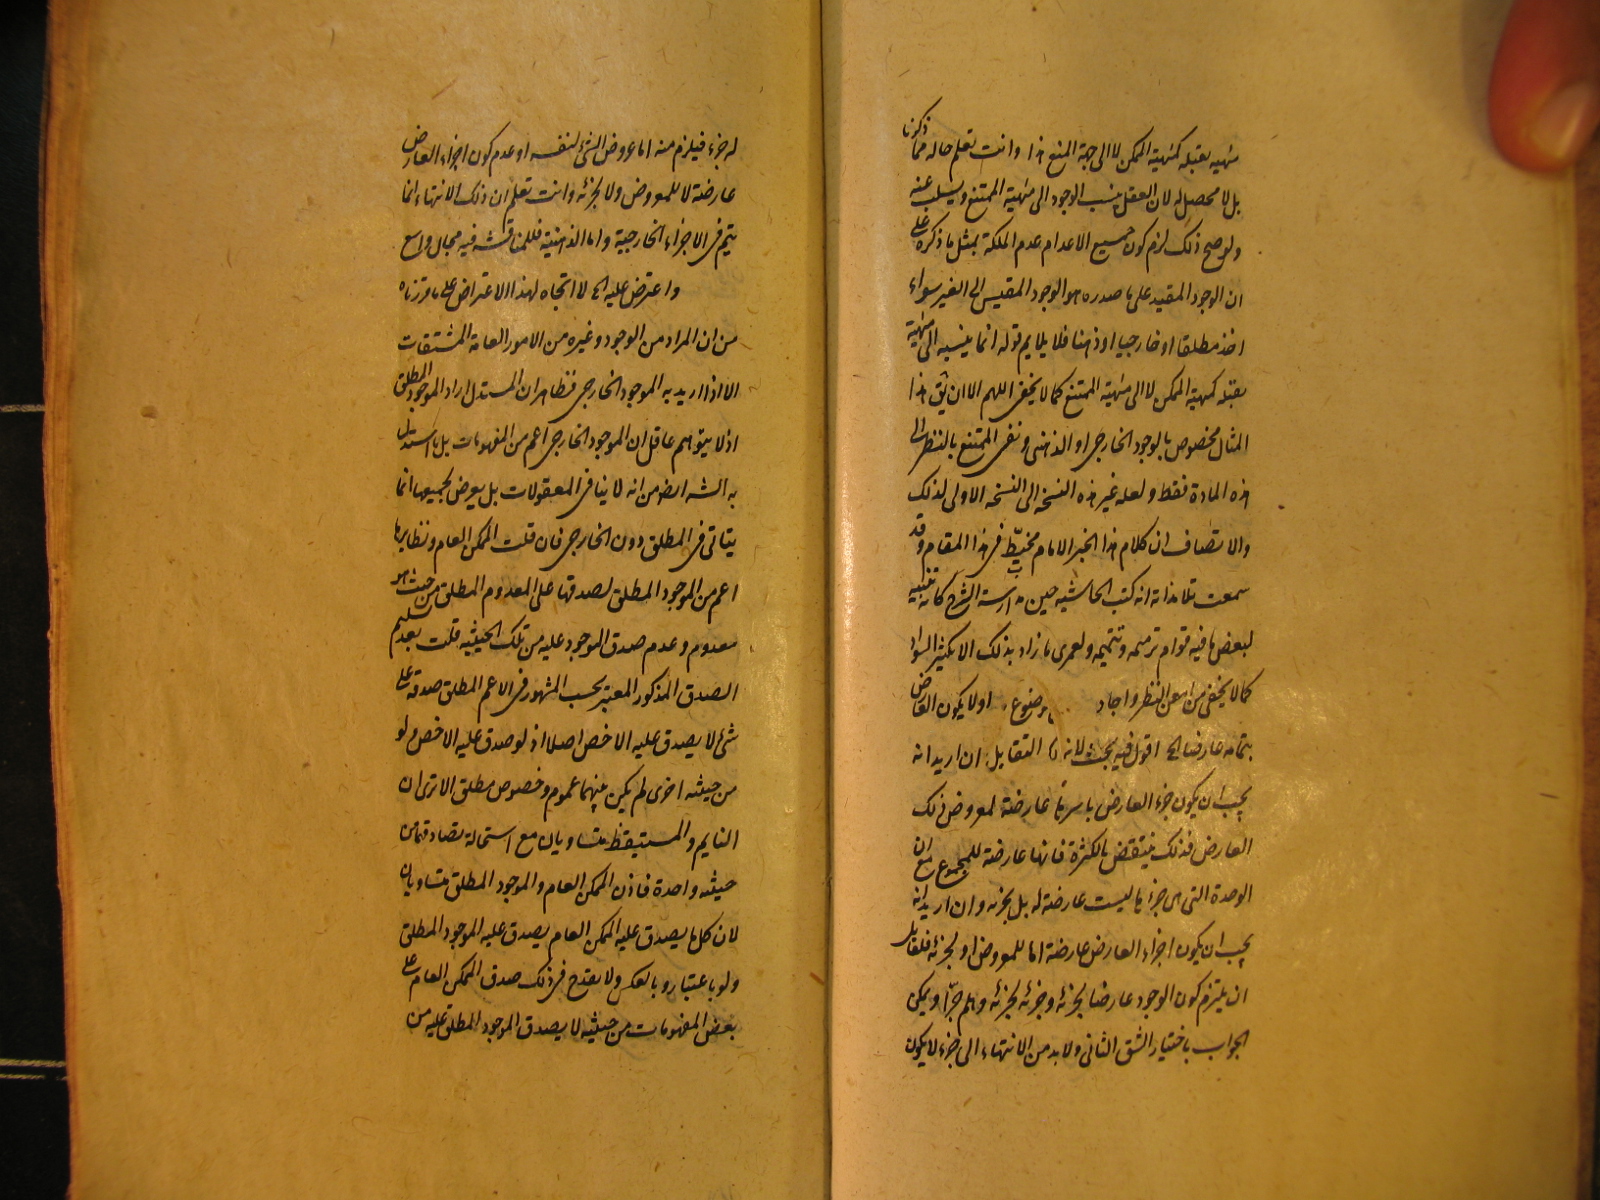 مهية يقبله كمهية الممكن لا الى جهة المنع هذا وانت تعلم حاله مما ذكرنا
بل لا محصل له لان العقل ينسب الوجود الى مهية الممتنع ويسلب عنه
ولو صح ذلك لزم كون جميع الاعدام عدم الملكة بمثل ما ذكره على
ان الوجود المقيد على ما صدره هو الوجود المقيس الى الغير سواء
اخذ مطلقا او خارجيا او ذهنا فلا يلايم قوله انما ينسبه الى مهية
يقبله كمهية الممكن لا الى مهية الممتنع كما لا يخفى اللهم الا ان يق هذا
المثال مخصوص بالوجود الخارجى او الذهنى ونفى الممتنع بالنظر الى
هذه المادة فقط ولعله غير هذه النسخة الى النسخة الاولى لذلك
والانصاف ان كلام هذا الحبر الامام مخبط فى هذا المقام وقد
سمعت تلامذته انه كتب الحاشيه حين مدارسة الشرح كانه تنبيه
لبعض ما فيه قوام ترميمه وتتميمه ولعمرى ما زاد بذلك الا تكثير السواد
كما لا يخفى من امعن النظر واجاد موضوع اولا يكون العارض
بتمامه عارضا الخ اقول فيه بحث لانه التقابل ان اريد انه
يجب ان يكون جزء العارض باسرها عارضة لمعروض ذلك
العارض فذلك ينتقض بالكثرة فانها عارضة للمجموع مع ان
الوحدة التى هى جزءها ليست عارضة له بل لجزئه وان اريد انه
يجب ان يكون اجزاء العارض عارضة اما للمعروض او لجزئه فلقايل
ان يلتزم كون الوجود عارضا لجزئه وجزئه لجزئه وهلم جرا ويمكن
الجواب باختيار الشق الثانى ولا بد من الانتهاء الى جزء لا يكون
له جزء فيلزم منه اما عروض الشئ لنفسه او عدم كون اجزاء العارض
عارضة لا للمعروض ولا لجزئه وانت تعلم ان ذلك الانتهاء انما
يتم فى الاجزاء الخارجية واما الذهنية فللمناقشة فيه مجال واسع
واعترض عليه الخ لا اتجاه لهذا الاعتراض على ما قررناه
من ان المراد من الوجود وغيره من الامور العامة المشتقات
الا اذا اريد به الموجود الخارجى فظاهر ان المستدل اراد الموجود المطلق
اذ لا يتوهم عاقل ان الموجود الخارجى اعم من المفهومات بل ما استدل
به الشه ايضا من انه لا ينافى المعقولات بل يعرض لجميعها انما
يتاتى فى المطلق دون الخارجى فان قلت الممكن العام ونظايرها
اعم من الموجود المطلق لصدقها على المعدوم المطلق من حيث هو
معدوم وعدم صدق الموجود عليه من تلك الحيثيه قلت بعد تسليم
الصدق المذكور المعتبر بحسب المشهور فى الاعم المطلق صدقه على
شئ لا يصدق عليه الاخص اصلا اذ لو صدق عليه الاخص ولو
من حيثيه اخرى لم يكن بينهما عموم وخصوص مطلق الا ترى ان
النايم والمستيقظ متساويان مع استحالة تصادقهما من
حيثيه واحدة فاذن الممكن العام والموجود المطلق متساويان
لان كل ما يصدق عليه الممكن العام يصدق عليه الموجود المطلق
ولو باعتبار وبالعكس ولا يقدح فى ذلك صدق الممكن العام على
بعض المفهومات من حيثيه لا يصدق الموجود المطلق عليه من